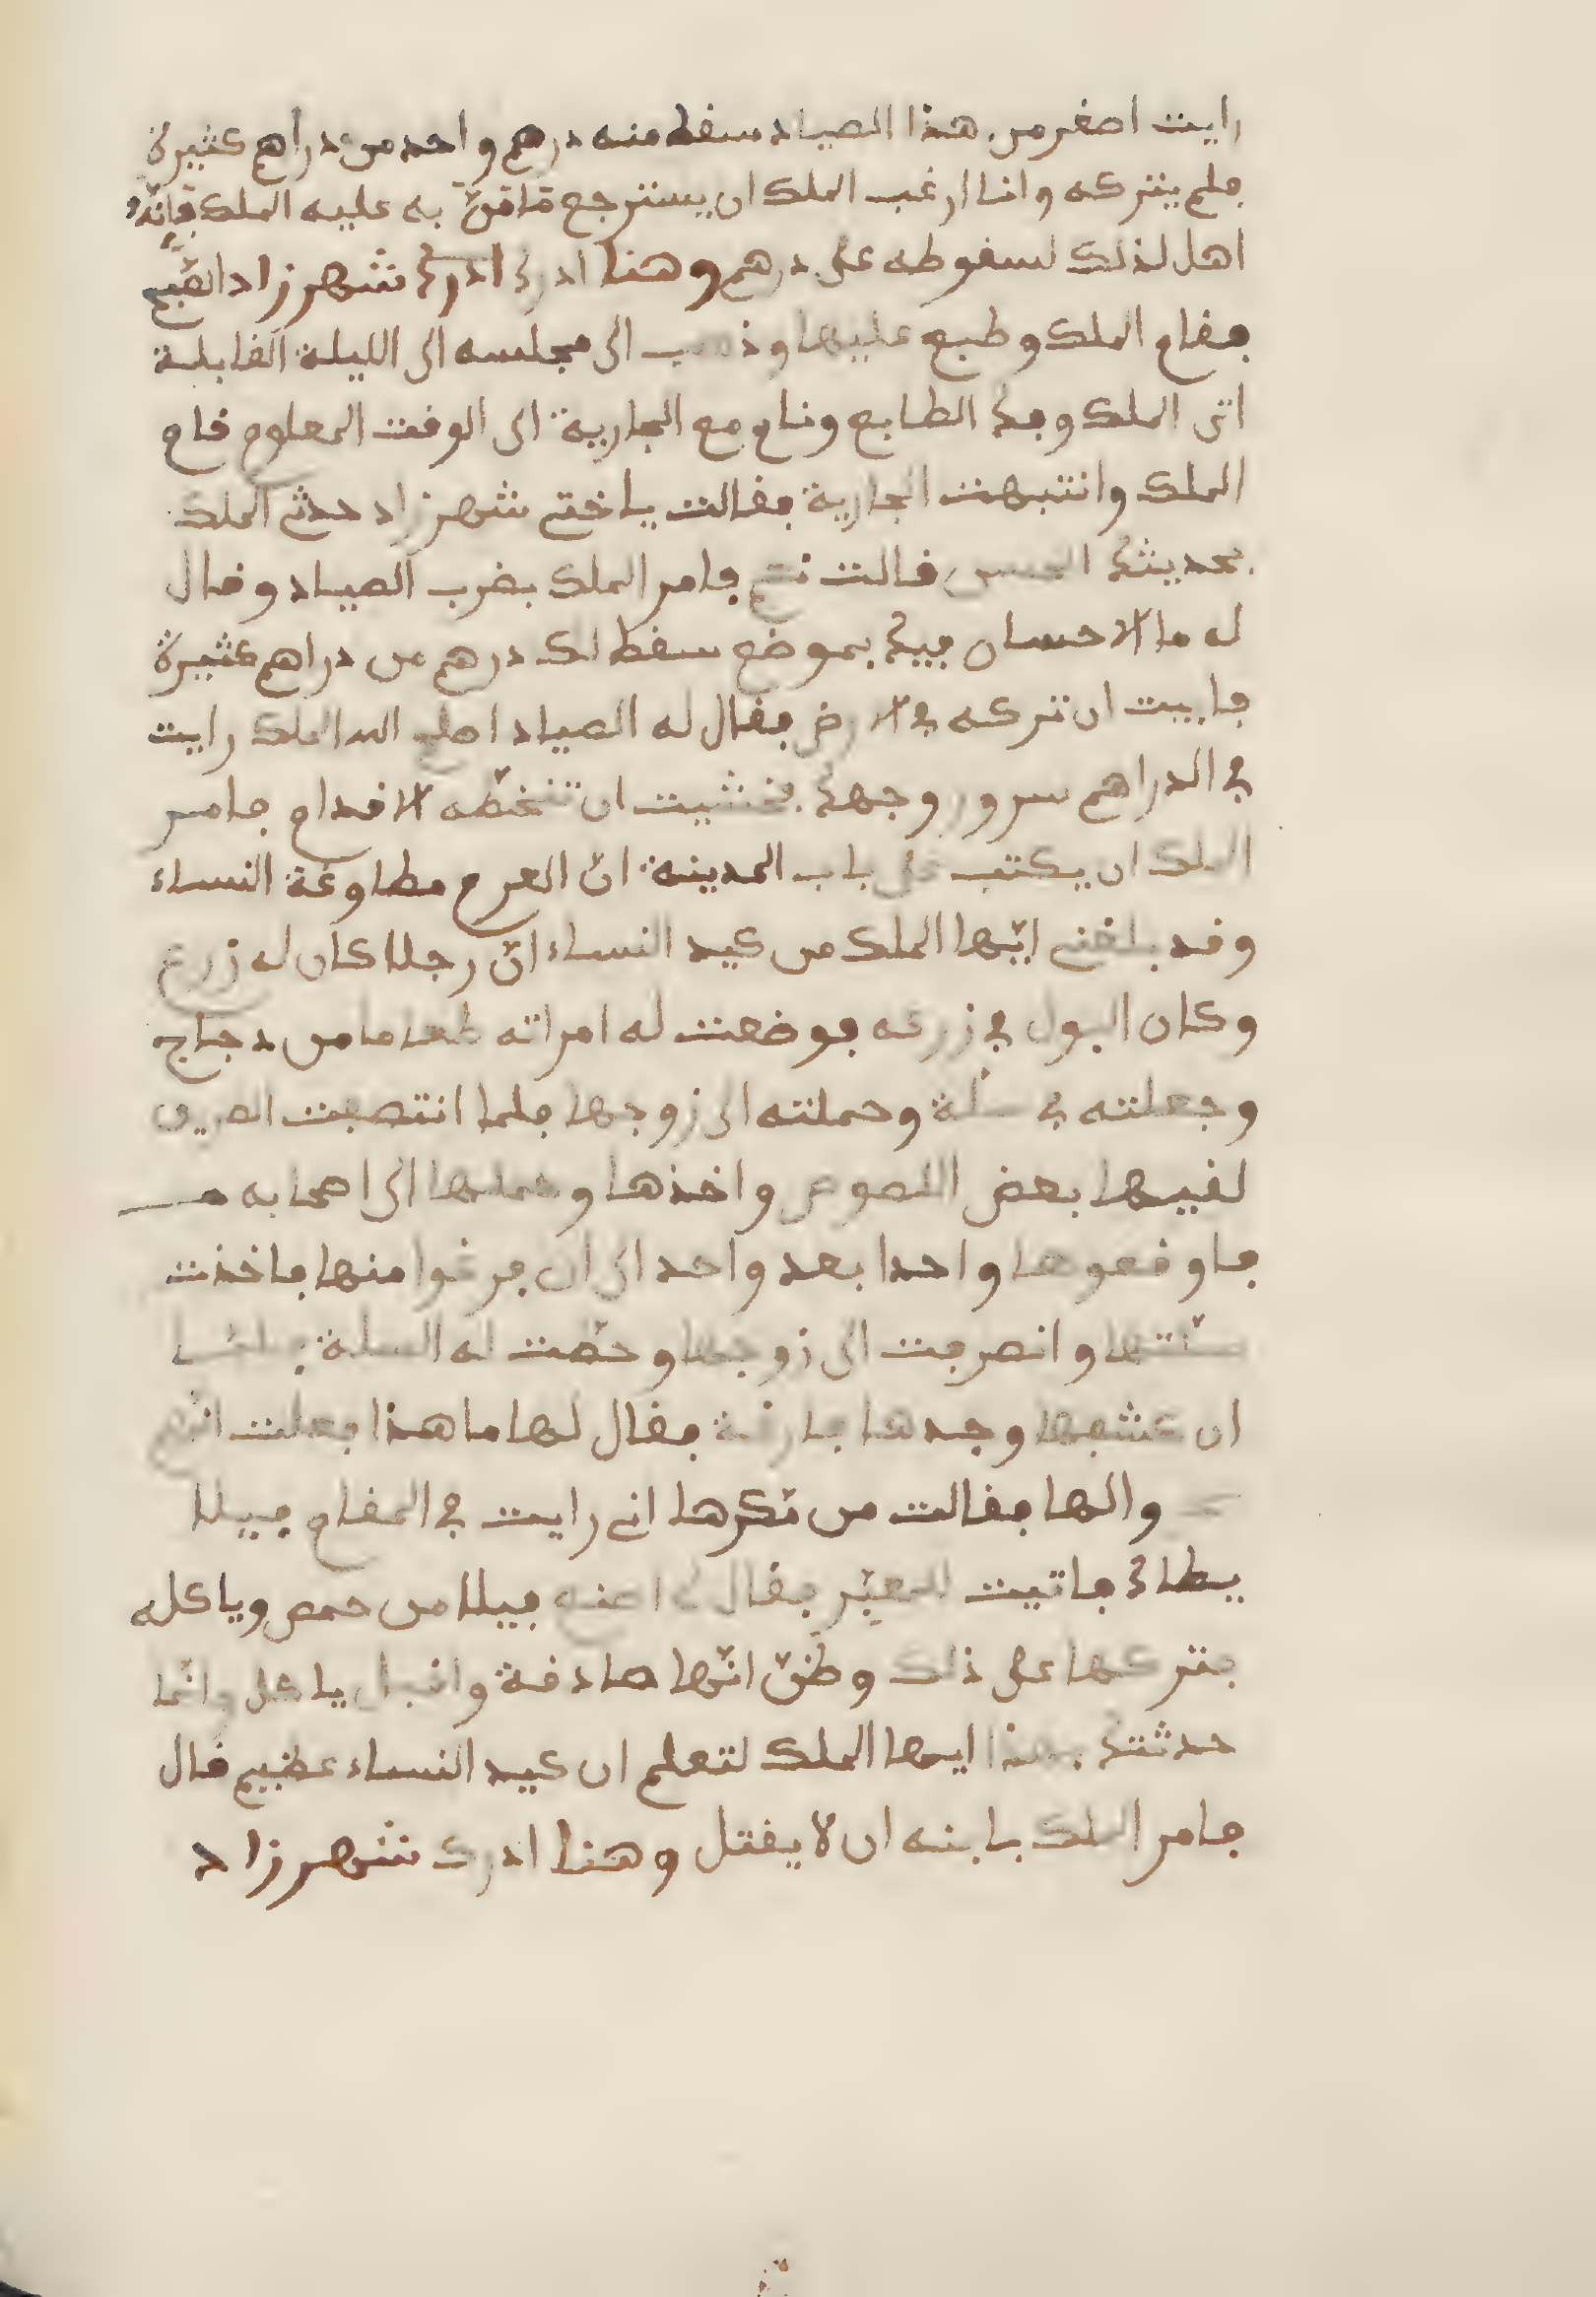 رايت اصغر من هذا الصياد سقط منه درهم واحد من دراهم كثيرة
فلم يتركه وانا ارغب الملك ان يسترجع مّا منّ به عليه الملك فإنّه
اهل لذلك لسقوطه على درهم وهنا ادرك ادرك شهرزاد الصّبح
فقام الملك وطبع عليها وذهب الى مجلسه الى الليلة القابلة
اتى الملك وفك الطابع ونام مع الجارية الى الوقت المعلوم قام
الملك وانتبهت الجارية فقالت ياختي شهرزاد حدثي الملك
بحديثك الحسن قالت نعم فامر الملك بضرب الصياد وقال
له ما الاحسان فيك بموضع سقط لك درهم من دراهم كثيرة
فابيت ان تركه في الارض فقال له الصياد اصلح الله الملك رايت
في الدراهم سرور وجهك فخشيت ان تتخطّه الاقدام فامر
الملك ان يكتب على باب المدينة انّ العرم مطاوعة النساء
وقد بلغني ايّها الملك من كيد النساء انّ رجلا كان له زرع
وكان البول في زرعه فوضعت له امراته طعاما من دجاج
وجعلته في سلّة وحملته الى زوجها فلما انتصفت الطريق
لقيها بعض اللصوص واخذها وحملها الى اصحابه
فاوقعوها واحدا بعد واحد الى ان فرغوا منها فاخذت
سلّتها وانصرفت الى زوجها وحطّت له السلة فلما
ان كشفها وجدها فارغة فقال لها ما هذا فعلت انّهم
والها فقالت من مكرها اني رايت في المقام فيلا
يطاك فاتيت المعبّر فقال لي اصنع فيلا من حمص وياكله
فتركها على ذلك وظنّ انّها صادقة واقبل ياكل وانّما
حدثتك بهذا ايها الملك لتعلم ان كيد النساء عظيم قال
فامر الملك بابنه ان لا يقتل وهنا ادرك شهرزاد